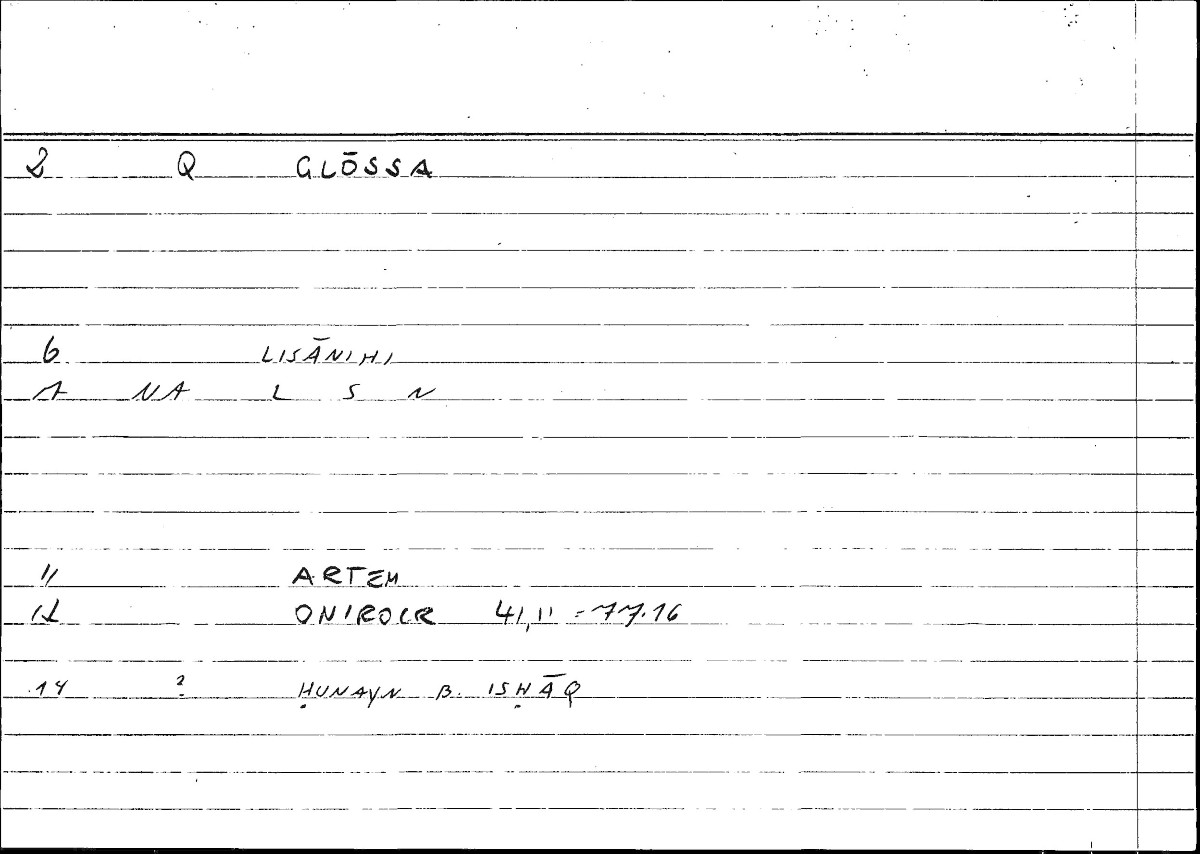 2 Q GLŌSSA
6 LISĀNIHI
A NA L S N
11 ARTEM
12 ONIROCR 41,11 = 77.16
14 2 ḤUNAYN B. ISḤĀQ